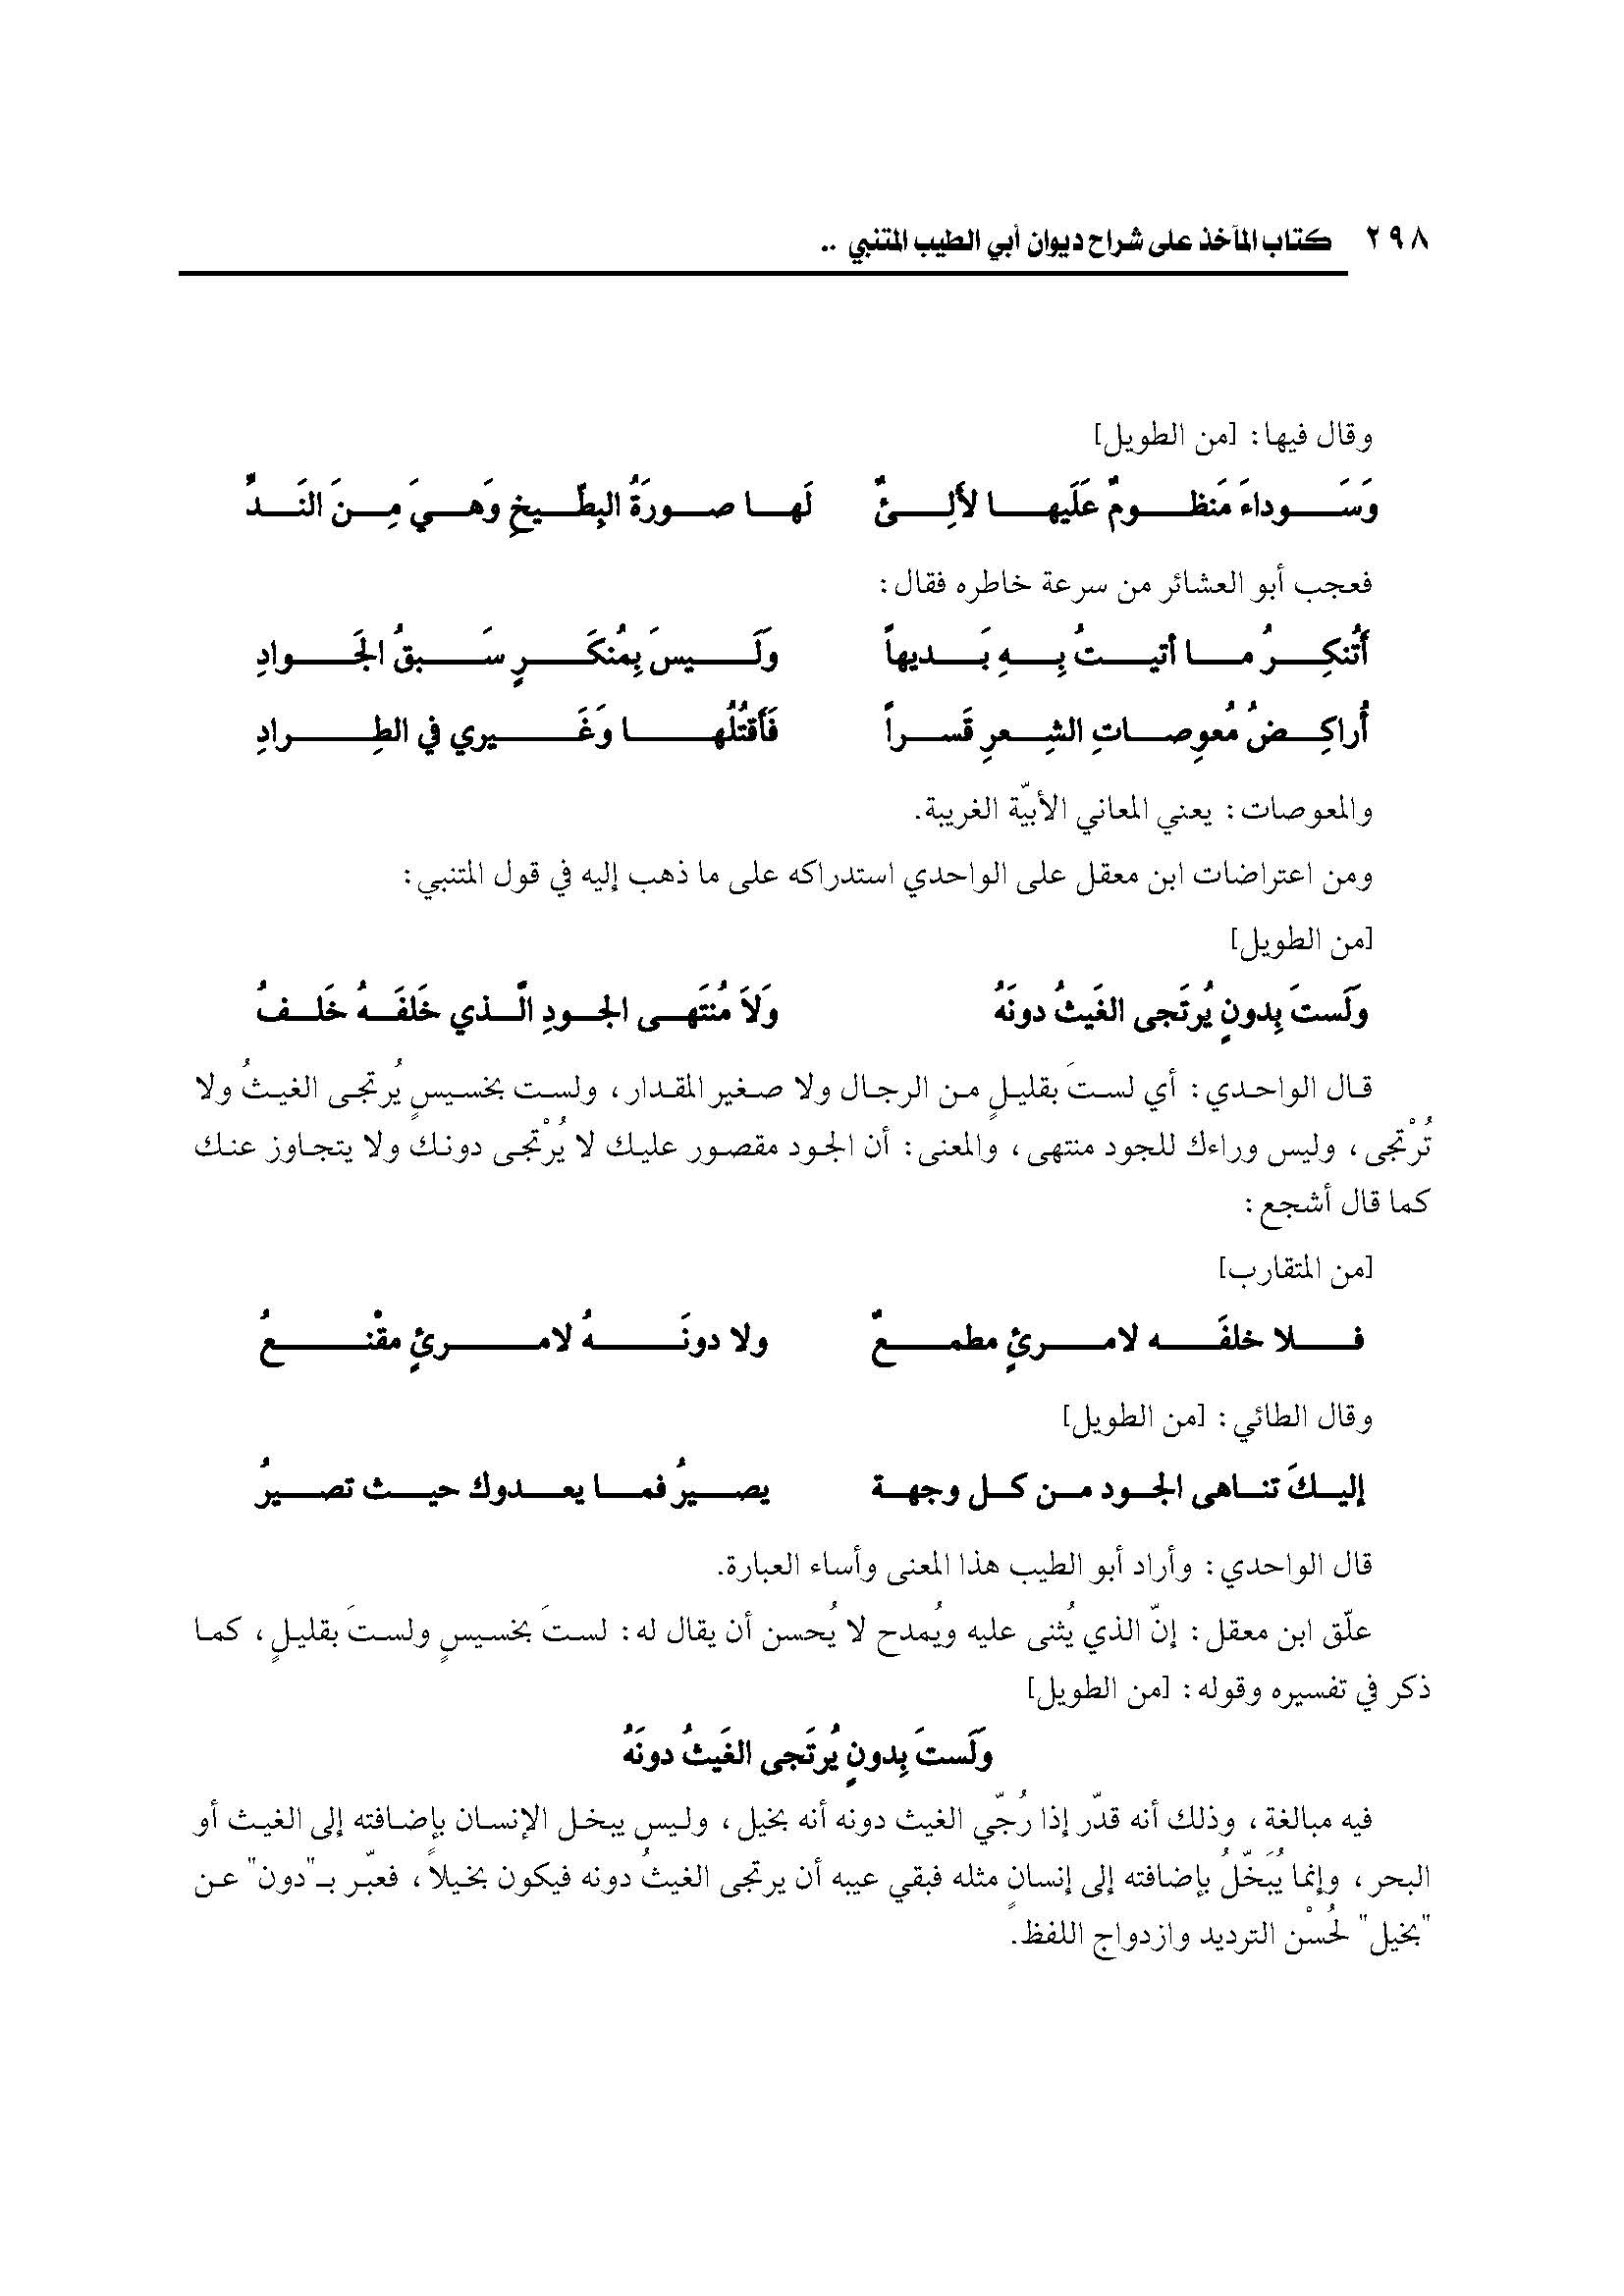 ٢٩٨ كتاب المآخذ على شراح ديوان أبي الطيب المتنبي ..
وقال فيها: [من الطويل]
وَسَوداءَ مَنظومٌ عَلَيها لأَلِئٌ لَها صورَةُ البِطّيخِ وَهيَ مِنَ النَدِّ
فعجب أبو العشائر من سرعة خاطره فقال:
أَتُنكِرُ ما أتيتُ بِهِ بَديهاً وَلَيسَ بِمُنكَرٍ سَبقُ الجَوادِ
أُراكِضُ مُعوِصاتِ الشِعرِ قَسراً فَأَقتُلُها وَغَيري في الطِرادِ
والمعوصات: يعني المعاني الأبيّة الغريبة.
ومن اعتراضات ابن معقل على الواحدي استدراكه على ما ذهب إليه في قول المتنبي:
[من الطويل]
وَلَستَ بِدونٍ يُرتَجى الغَيثُ دونَهُ وَلاَ مُنتَهى الجودِ الَّذي خَلفَهُ خَلفُ
قال الواحدي: أي لستَ بقليلٍ من الرجال ولا صغير المقدار، ولست بخسيسٍ يُرتجى الغيثُ ولا
تُرْتجى، وليس وراءك للجود منتهى، والمعنى: أن الجود مقصور عليك لا يُرْتجى دونك ولا يتجاوز عنك
كما قال أشجع:
[من المتقارب]
فلا خلفَه لامرئٍ مطمعٌ ولا دونَهُ لامرئٍ مقْنعُ
وقال الطائي: [من الطويل]
إليكَ تناهى الجود من كل وجهة يصيرُ فما يعدوك حيث تصيرُ
قال الواحدي: وأراد أبو الطيب هذا المعنى وأساء العبارة.
علّق ابن معقل: إنّ الذي يُثنى عليه ويُمدح لا يُحسن أن يقال له: لستَ بخسيسٍ ولستَ بقليلٍ، كما
ذكر في تفسيره وقوله: [من الطويل]
وَلَستَ بِدونٍ يُرتَجى الغَيثُ دونَهُ
فيه مبالغة، وذلك أنه قدّر إذا رُجّي الغيث دونه أنه بخيل، وليس يبخل الإنسان بإضافته إلى الغيث أو
البحر، وإنما يُبَخّلُ بإضافته إلى إنسانٍ مثله فبقي عيبه أن يرتجى الغيثُ دونه فيكون بخيلاً، فعبّر بـ"دون" عن
"بخيل" لحُسْن الترديد وازدواج اللفظ.